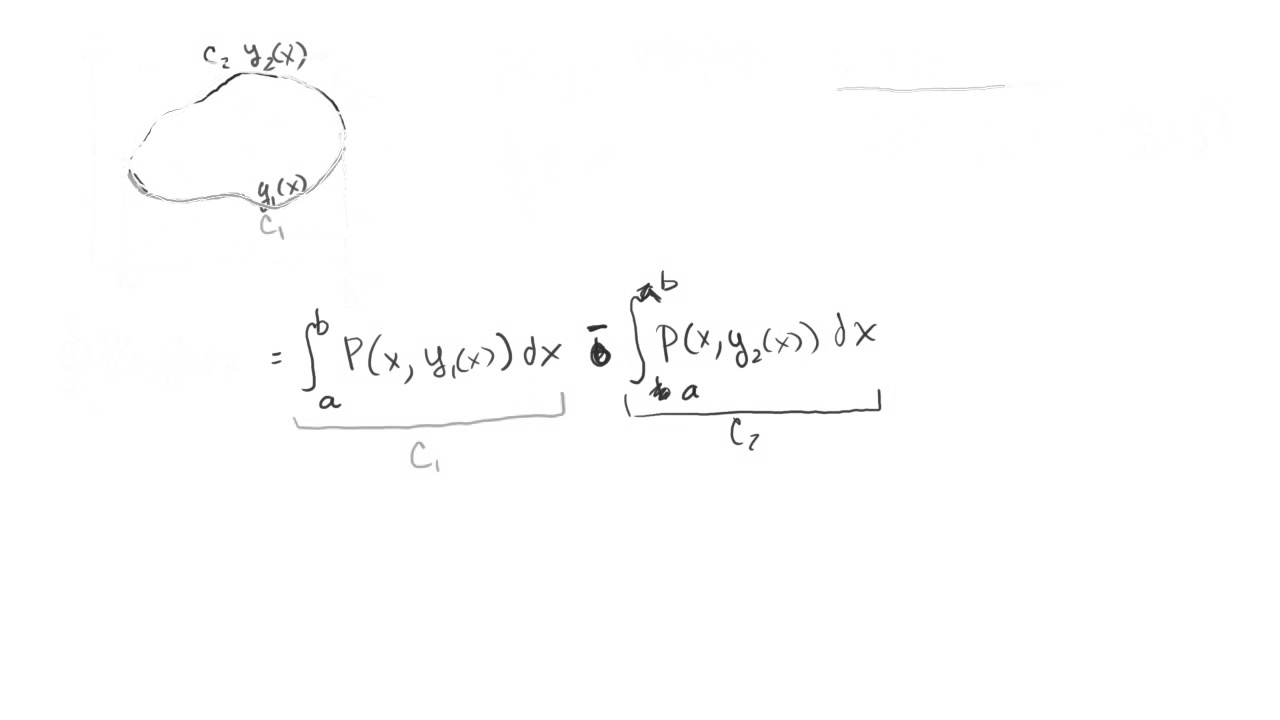 C₂ y₂(x)
y₁(x)
C₁
= ∫ₐᵇ P(x, y₁(x)) dx − ∫ₐᵇ P(x, y₂(x)) dx
C₁ C₂